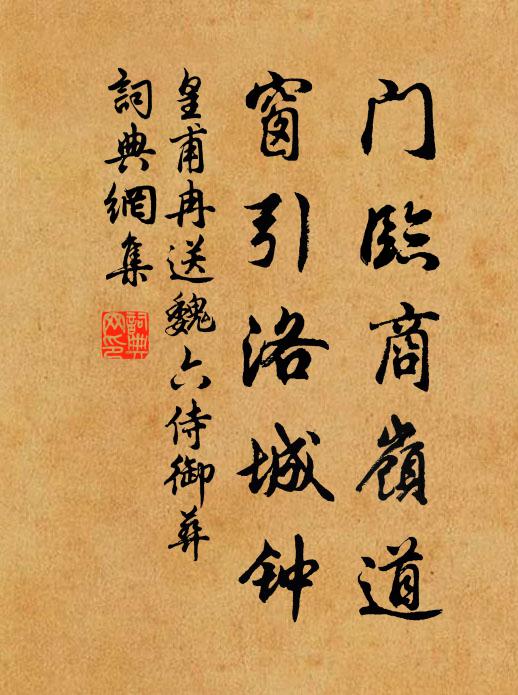 门臨商嶺道
窗引洛城钟
皇甫冉送魏六侍御葬
詞典網集
詞典
网印